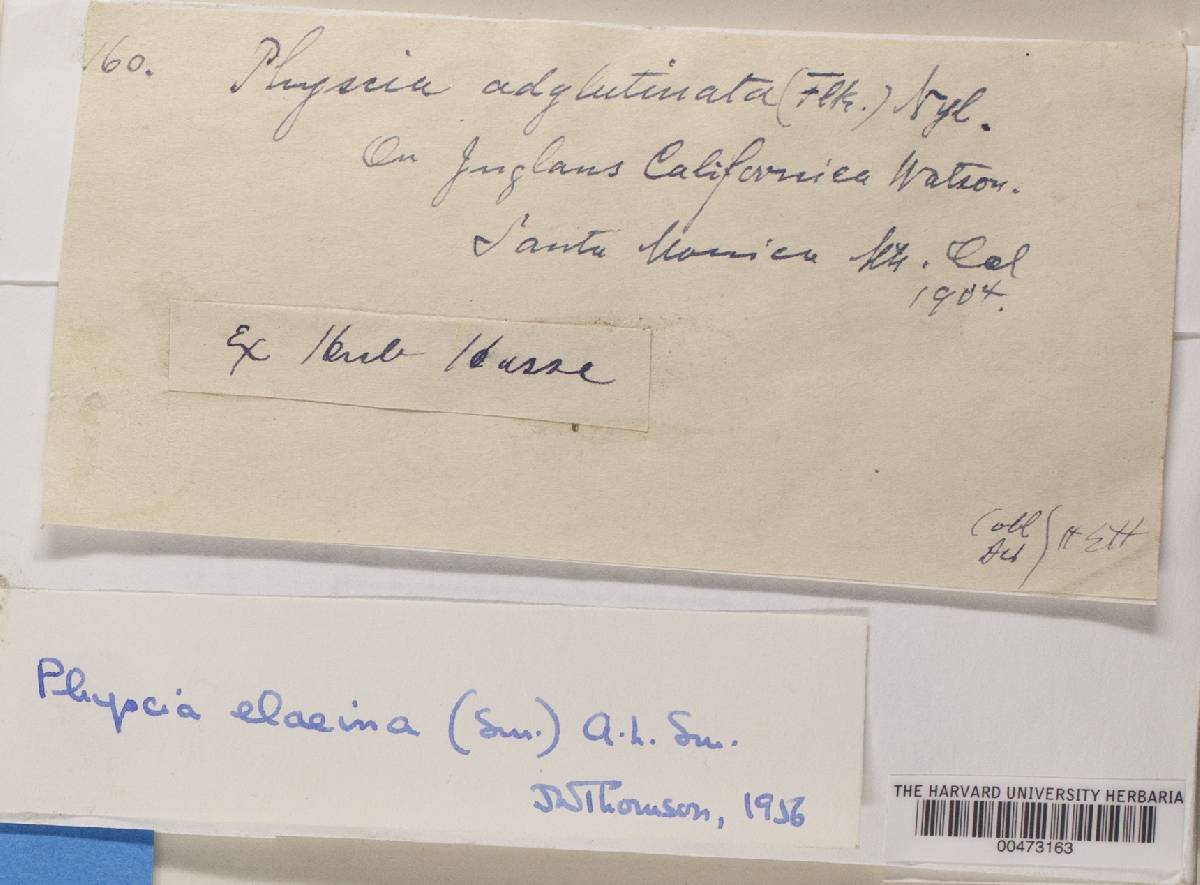 160.
Physcia adglutinata (Flk.) Nyl.
On Juglans Californica Watson.
Santa Monica Mts. Cal
1904.
Ex Herb Hasse
Coll
Det } HEH
Physcia elaeina (Sm.) A.L. Sm.
JWThomson, 1956
THE HARVARD UNIVERSITY HERBARIA
00473163